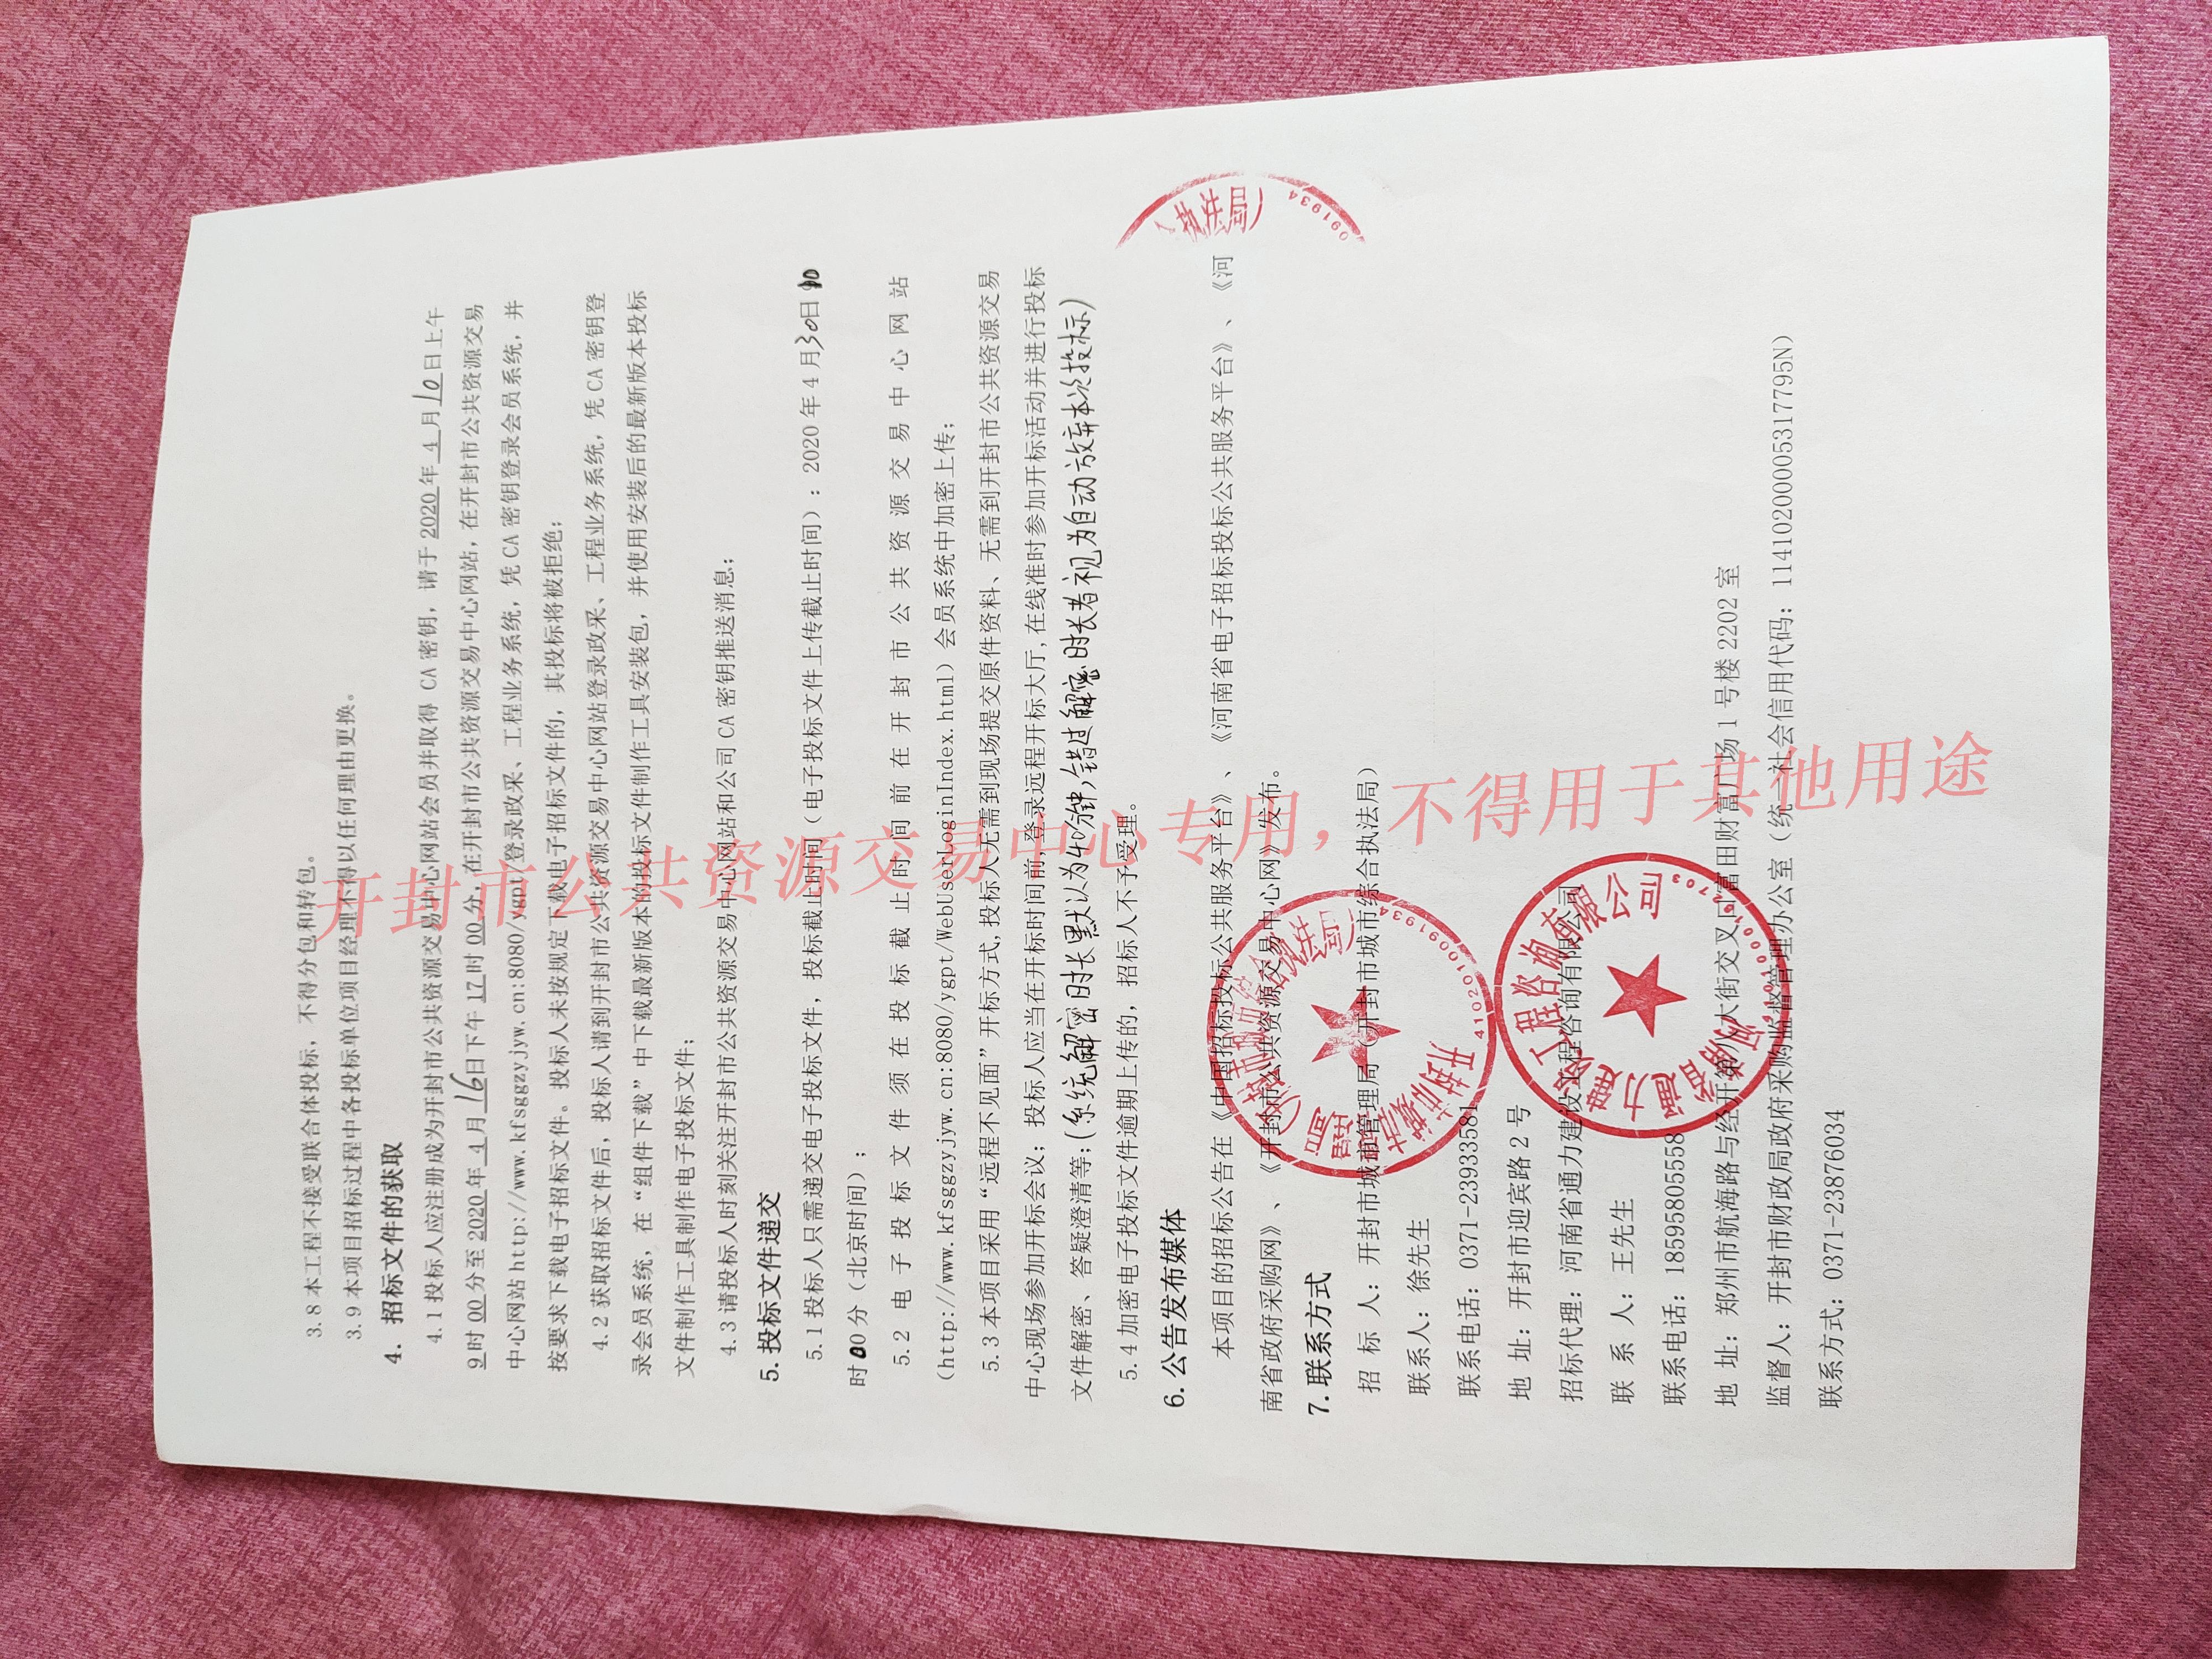 3.8 本工程不接受联合体投标，不得分包和转包。
3.9 本项目招标过程中各投标单位项目经理不得以任何理由更换。
4. 招标文件的获取
4.1 投标人应注册成为开封市公共资源交易中心网站会员并取得 CA 密钥，请于 2020 年 4 月 10 日上午
9 时 00 分至 2020 年 4 月 16 日下午 17 时 00 分，在开封市公共资源交易中心网站，在开封市公共资源交易
中心网站 http://www.kfsggzyjyw.cn:8080/ygpt/登录政采、工程业务系统，凭 CA 密钥登录会员系统，并
按要求下载电子招标文件。投标人未按规定下载电子招标文件的，其投标将被拒绝；
4.2 获取招标文件后，投标人请到开封市公共资源交易中心网站登录政采、工程业务系统，凭 CA 密钥登
录会员系统，在“组件下载”中下载最新版本的投标文件制作工具安装包，并使用安装后的最新版本投标
文件制作工具制作电子投标文件；
4.3 请投标人时刻关注开封市公共资源交易中心网站和公司 CA 密钥推送消息；
5. 投标文件递交
5.1 投标人只需递交电子投标文件，投标截止时间（电子投标文件上传截止时间）：2020 年 4 月 30 日
时 00 分（北京时间）；
5.2 电子投标文件须在投标截止时间前在开封市公共资源交易中心网站
（http://www.kfsggzyjyw.cn:8080/ygpt/WebUserLoginIndex.html）会员系统中加密上传；
5.3 本项目采用“远程不见面”开标方式，投标人无需到现场提交原件资料、无需到开封市公共资源交易
中心现场参加开标会议；投标人应当在开标时间前，登录远程开标大厅，在线准时参加开标活动并进行投标
文件解密、答疑澄清等；(系统解密时长默认为40分钟,错过解密时长者视为自动放弃本次投标)
5.4 加密电子投标文件逾期上传的，招标人不予受理。
6. 公告发布媒体
本项目的招标公告在《中国招标投标公共服务平台》、《河南省电子招标投标公共服务平台》、《河
南省政府采购网》、《开封市公共资源交易中心网》发布。
7. 联系方式
招 标 人：开封市城市管理局（开封市城市综合执法局）
联系人：徐先生
联系电话：0371-23933581
地 址：开封市迎宾路 2 号
招标代理：河南省通力建设工程咨询有限公司
联 系 人：王先生
联系电话：18595805558
地 址：郑州市航海路与经开第八大街交叉口富田财富广场 1 号楼 2202 室
监督人：开封市财政局政府采购监督管理办公室（统一社会信用代码：11410200005317795N）
联系方式：0371-23876034
开封市公共资源交易中心专用，不得用于其他用途
4102010091934
091934